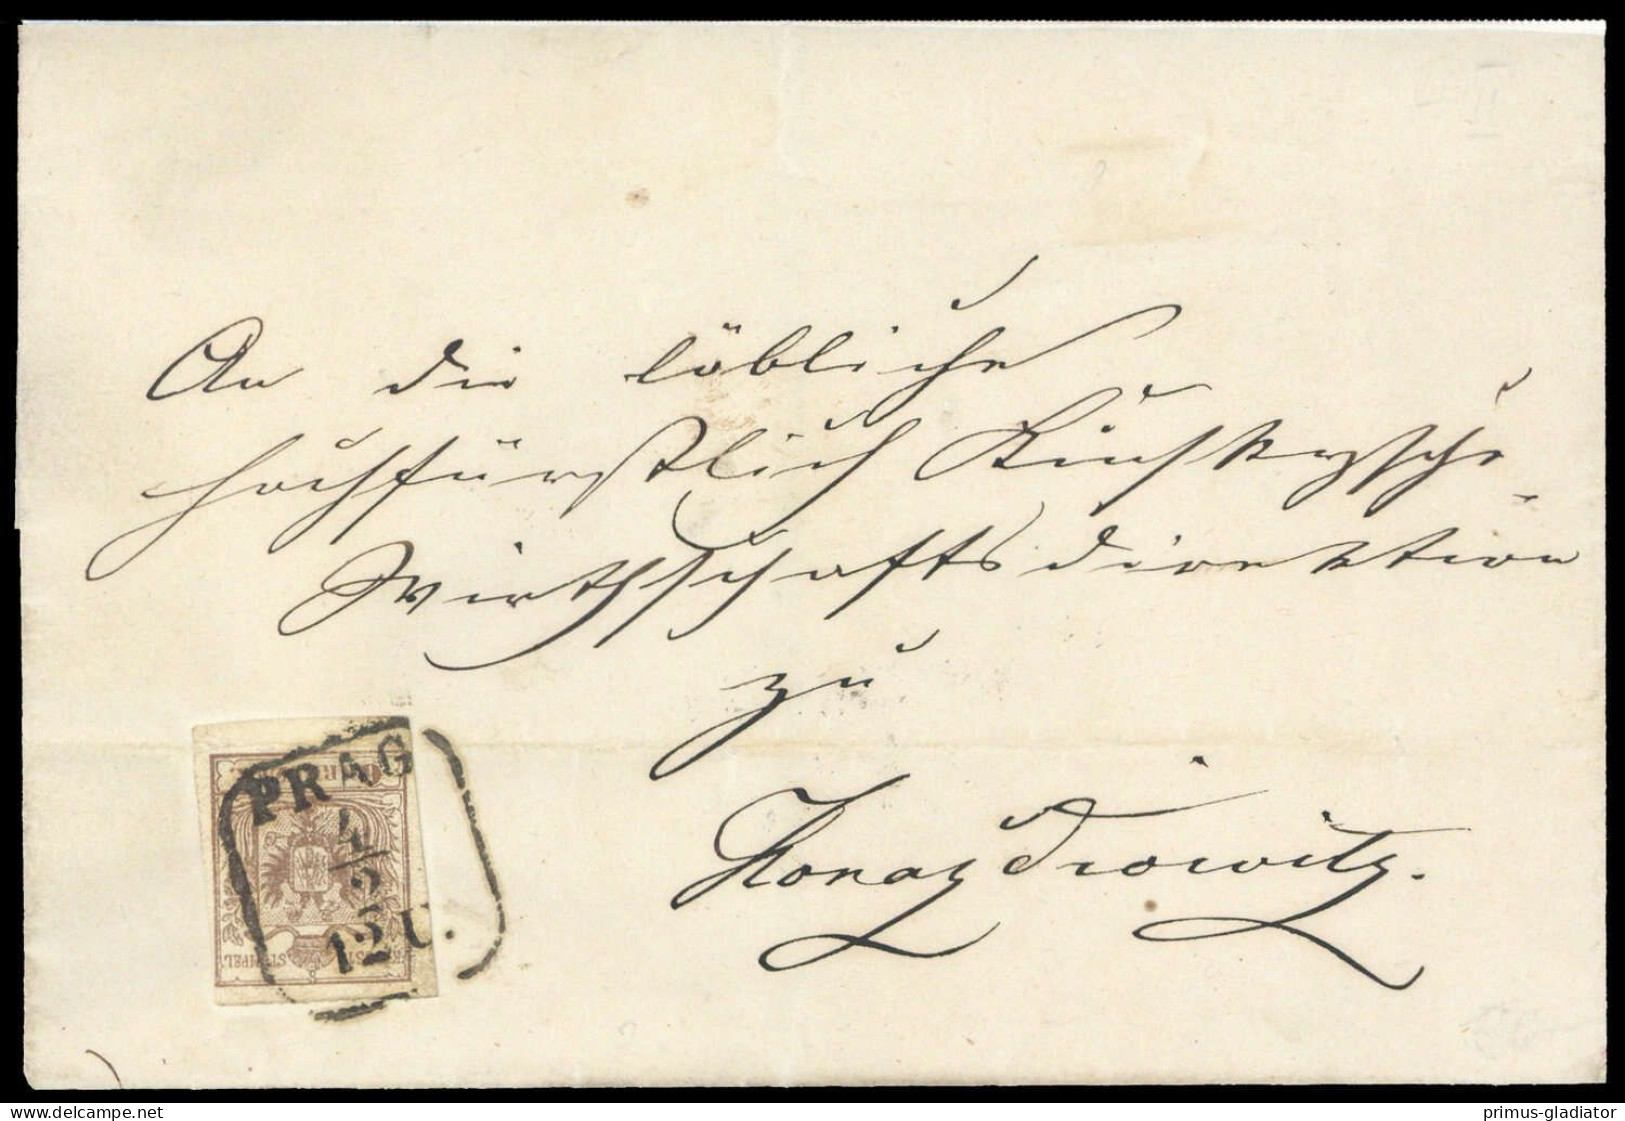 An die löbliche
hochfürstlich Kinskysche
Wirthschaftsdirektion
zu
Horazdiowitz.
PRAG
4/2
12 U.
KK POST
STEMPEL
delcampe.net
primus-gladiator